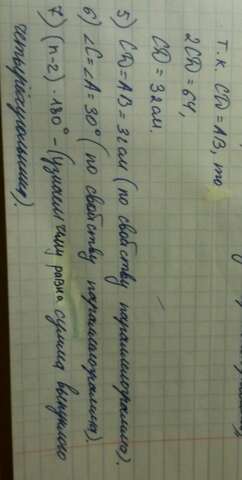 т.к. CD = AB, то
2CD = 64,
CD = 32см.
5) CD = AB = 32см (по свойству параллелограмма).
6) ∠C = ∠A = 30° (по свойству параллелограмма).
7) (n-2) · 180° - (узнаем чему равна сумма выпуклого
четырёхугольника).